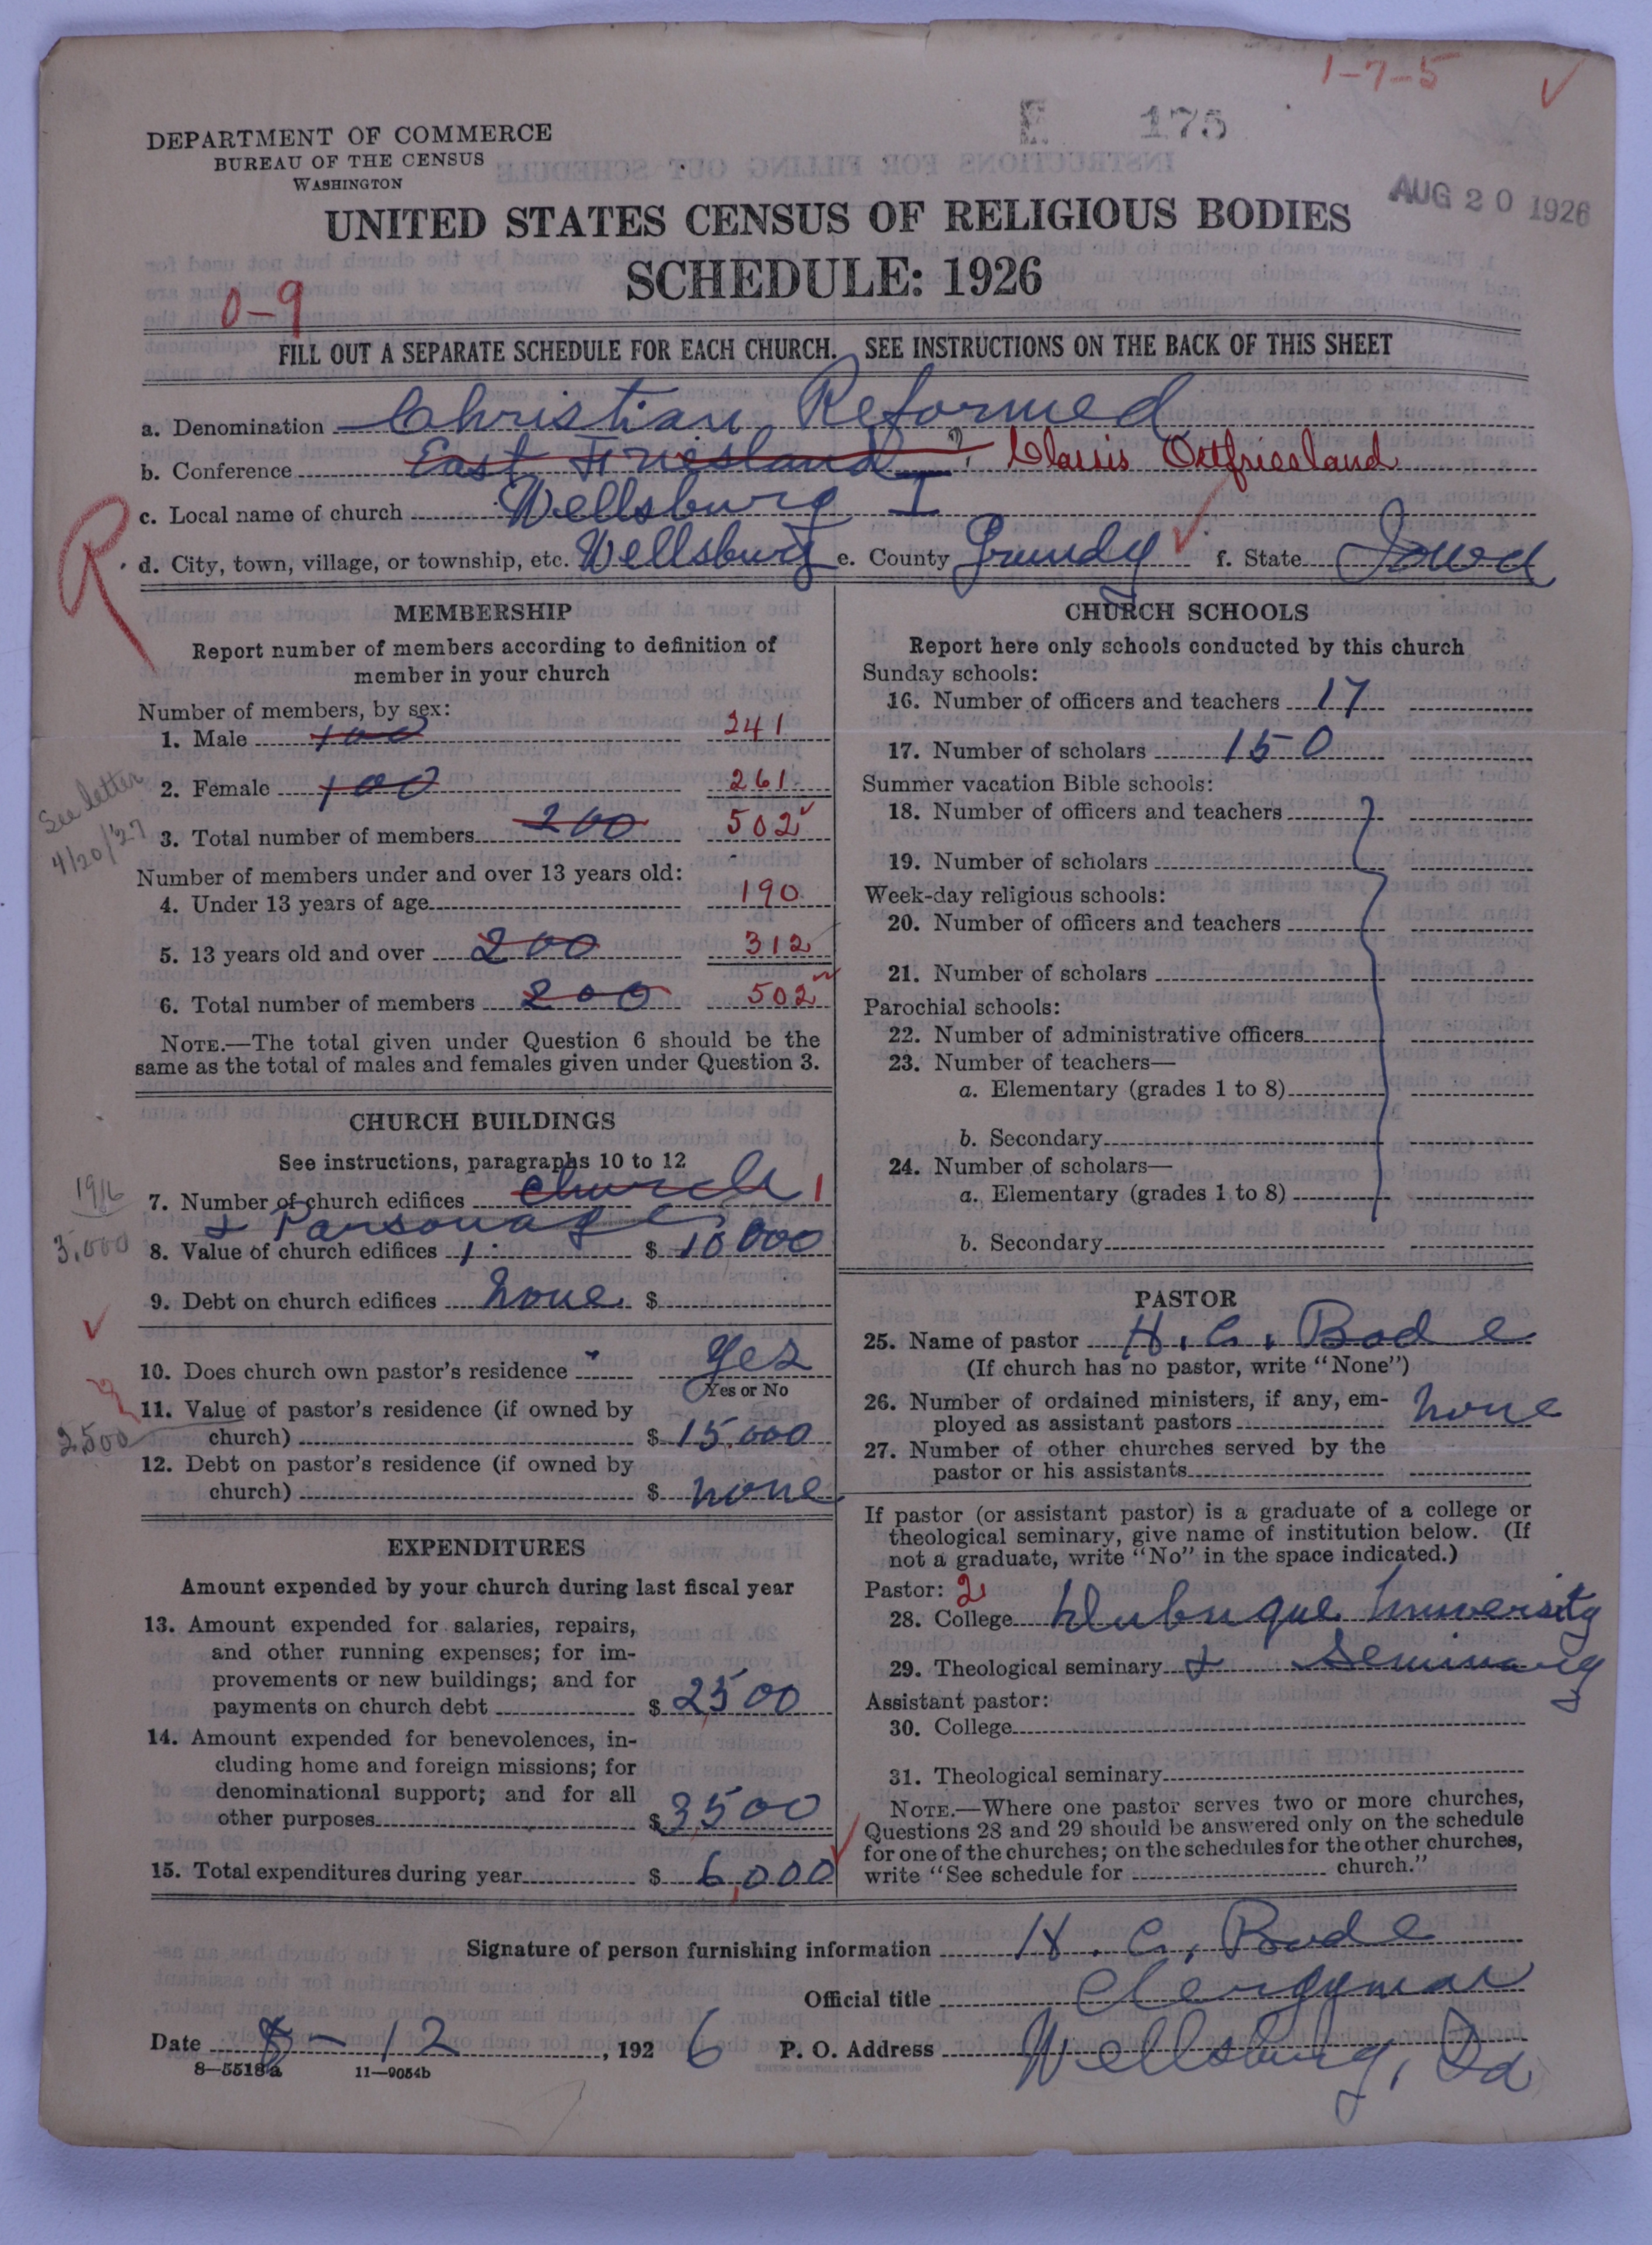 1-7-5
E 175
DEPARTMENT OF COMMERCE
BUREAU OF THE CENSUS
WASHINGTON
AUG 20 1926
UNITED STATES CENSUS OF RELIGIOUS BODIES
SCHEDULE: 1926
0-9
FILL OUT A SEPARATE SCHEDULE FOR EACH CHURCH. SEE INSTRUCTIONS ON THE BACK OF THIS SHEET
a. Denomination Christian Reformed
b. Conference East Friesland I? Classis Ostfriesland
R
c. Local name of church Wellsburg I
d. City, town, village, or township, etc. Wellsburg e. County Grundy f. State Iowa
MEMBERSHIP
Report number of members according to definition of
member in your church
Number of members, by sex:
1. Male 100 241
2. Female 100 261
See letter
4/20/27
3. Total number of members 200 502
Number of members under and over 13 years old:
4. Under 13 years of age 190
5. 13 years old and over 200 312
6. Total number of members 200 502
NOTE.—The total given under Question 6 should be the
same as the total of males and females given under Question 3.
CHURCH BUILDINGS
See instructions, paragraphs 10 to 12
1916
7. Number of church edifices church 1
& Parsonage
3,000
8. Value of church edifices 1 $ 10000
9. Debt on church edifices none $
10. Does church own pastor's residence Yes
Yes or No
11. Value of pastor's residence (if owned by
2500
church) $ 15.000
12. Debt on pastor's residence (if owned by
church) $ none
EXPENDITURES
Amount expended by your church during last fiscal year
13. Amount expended for salaries, repairs,
and other running expenses; for im-
provements or new buildings; and for
payments on church debt $ 2500
14. Amount expended for benevolences, in-
cluding home and foreign missions; for
denominational support; and for all
other purposes $ 3500
15. Total expenditures during year $ 6,000
CHURCH SCHOOLS
Report here only schools conducted by this church
Sunday schools:
16. Number of officers and teachers 17
17. Number of scholars 150
Summer vacation Bible schools:
18. Number of officers and teachers
19. Number of scholars
Week-day religious schools:
20. Number of officers and teachers
21. Number of scholars
Parochial schools:
22. Number of administrative officers
23. Number of teachers—
a. Elementary (grades 1 to 8)
b. Secondary
24. Number of scholars—
a. Elementary (grades 1 to 8)
b. Secondary
PASTOR
25. Name of pastor H. C. Bode
(If church has no pastor, write "None")
26. Number of ordained ministers, if any, em-
ployed as assistant pastors none
27. Number of other churches served by the
pastor or his assistants
If pastor (or assistant pastor) is a graduate of a college or
theological seminary, give name of institution below. (If
not a graduate, write "No" in the space indicated.)
Pastor: 2
28. College Dubuque University
29. Theological seminary & Seminary
Assistant pastor:
30. College
31. Theological seminary
NOTE.—Where one pastor serves two or more churches,
Questions 28 and 29 should be answered only on the schedule
for one of the churches; on the schedules for the other churches,
write "See schedule for church."
Signature of person furnishing information H. C. Bode
Official title Clergyman
Date 8-12, 1926 P. O. Address Wellsburg, Ia
8—5518a 11—9054b